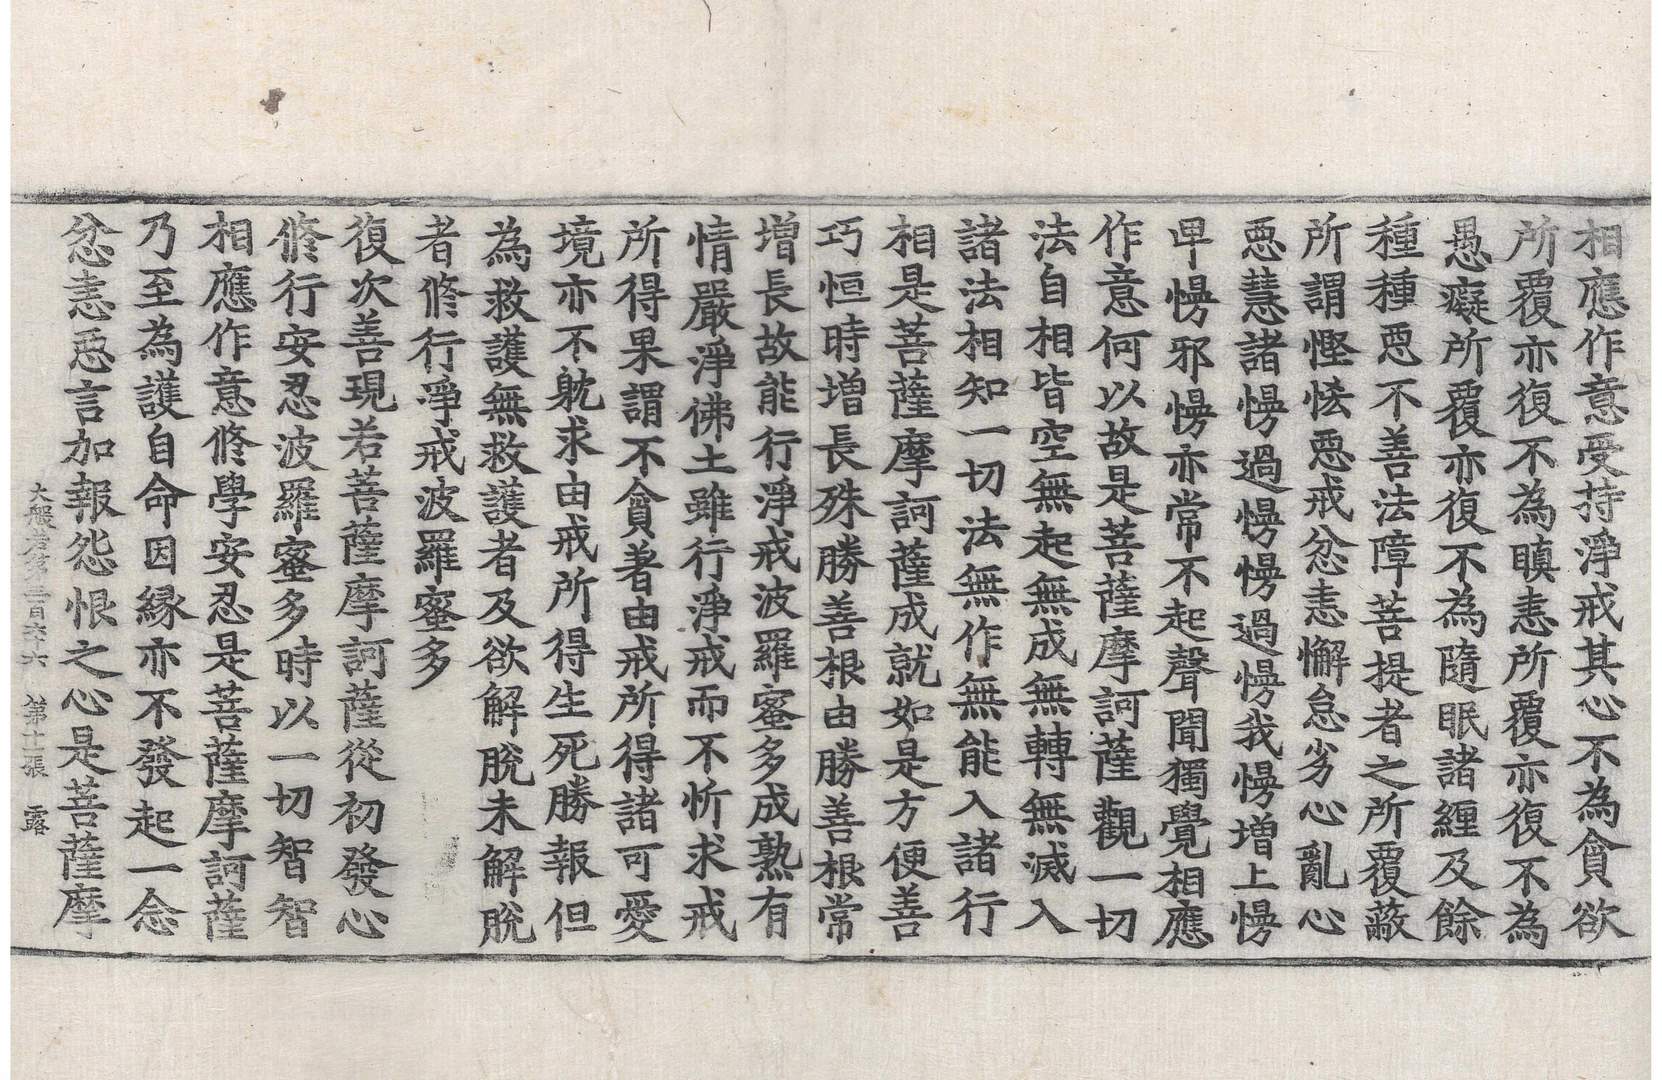 相應作意受持淨戒其心不為貪欲
所覆亦復不為瞋恚所覆亦復不為
愚癡所覆亦復不為隨眠諸纏及餘
種種惡不善法障菩提者之所覆蔽
所謂慳悋惡戒忿恚懈怠劣心亂心
惡慧諸慢過慢慢過慢我慢增上慢
卑慢邪慢亦常不起聲聞獨覺相應
作意何以故是菩薩摩訶薩觀一切
法自相皆空無起無成無轉無滅入
諸法相知一切法無作無能入諸行
相是菩薩摩訶薩成就如是方便善
巧恒時增長殊勝善根由勝善根常
增長故能行淨戒波羅蜜多成熟有
情嚴淨佛土雖行淨戒而不忻求戒
所得果謂不貪著由戒所得諸可愛
境亦不躭求由戒所得生死勝報但
為救護無救護者及欲解脫未解脫
者修行淨戒波羅蜜多
復次善現若菩薩摩訶薩從初發心
修行安忍波羅蜜多時以一切智智
相應作意修學安忍是菩薩摩訶薩
乃至為護自命因緣亦不發起一念
忿恚惡言加報怨恨之心是菩薩摩
大般若第三百六十六　第十一張　露